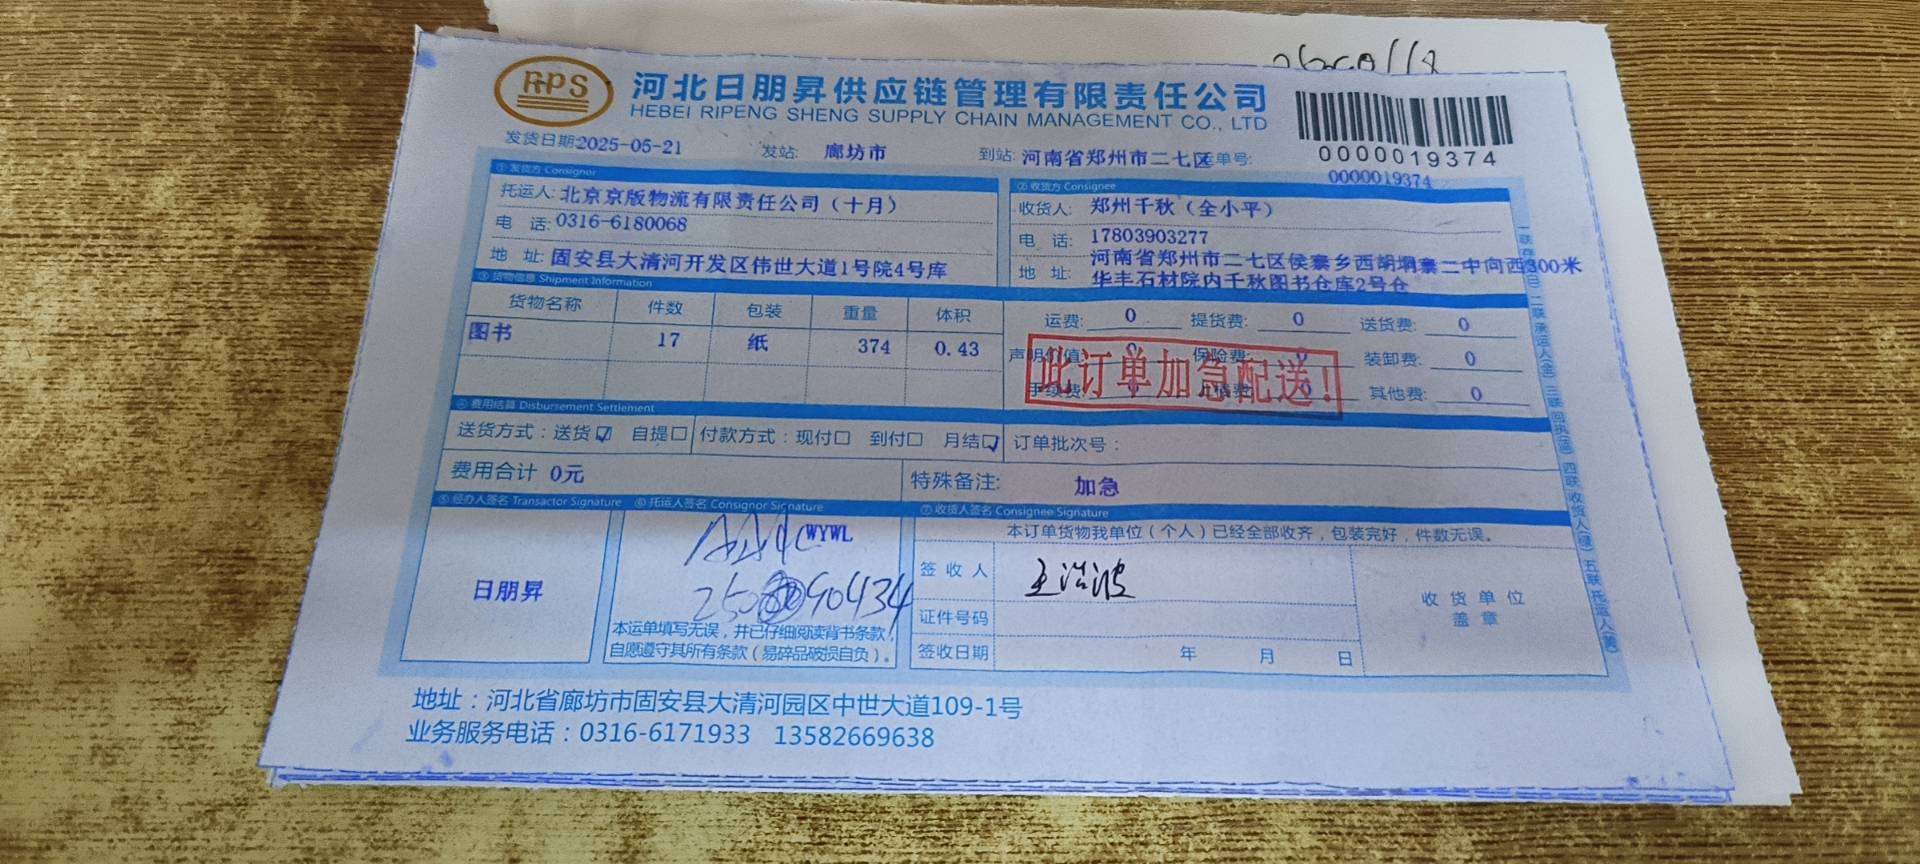 RPS
河北日朋昇供应链管理有限责任公司
HEBEI RIPENG SHENG SUPPLY CHAIN MANAGEMENT CO., LTD
0000019374
发货日期:2025-05-21 发站: 廊坊市 到站: 河南省郑州市二七区 单号:
0000019374
①发货方 Consignor
托运人: 北京京版物流有限责任公司（十月）
电 话: 0316-6180068
地 址: 固安县大清河开发区伟世大道1号院4号库
②收货方 Consignee
收货人: 郑州千秋（全小平）
电 话: 17803903277
地 址: 河南省郑州市二七区侯寨乡西胡垌寨二中向西300米
华丰石材院内千秋图书仓库2号仓
③货物信息 Shipment Information
货物名称 件数 包装 重量 体积
图书 17 纸 374 0.43
运费: 0 提货费: 0 送货费: 0
声明价值: 0 保险费: 0 装卸费: 0
手续费: 0 0 其他费: 0
此订单加急配送!
④费用结算 Disbursement Settlement
送货方式：送货☑ 自提□ 付款方式：现付□ 到付□ 月结☑ 订单批次号：
费用合计 0元 特殊备注: 加急
⑤经办人签名 Transactor Signature ⑥托运人签名 Consignor Signature ⑦收货人签名 Consignee Signature
日朋昇
WYWL
本运单填写无误，并已仔细阅读背书条款，
自愿遵守其所有条款（易碎品破损自负）。
本订单货物我单位（个人）已经全部收齐，包装完好，件数无误。
签收人 王浩波
证件号码
签收日期 年 月 日
收货单位
盖章
地址：河北省廊坊市固安县大清河园区中世大道109-1号
业务服务电话：0316-6171933 13582669638